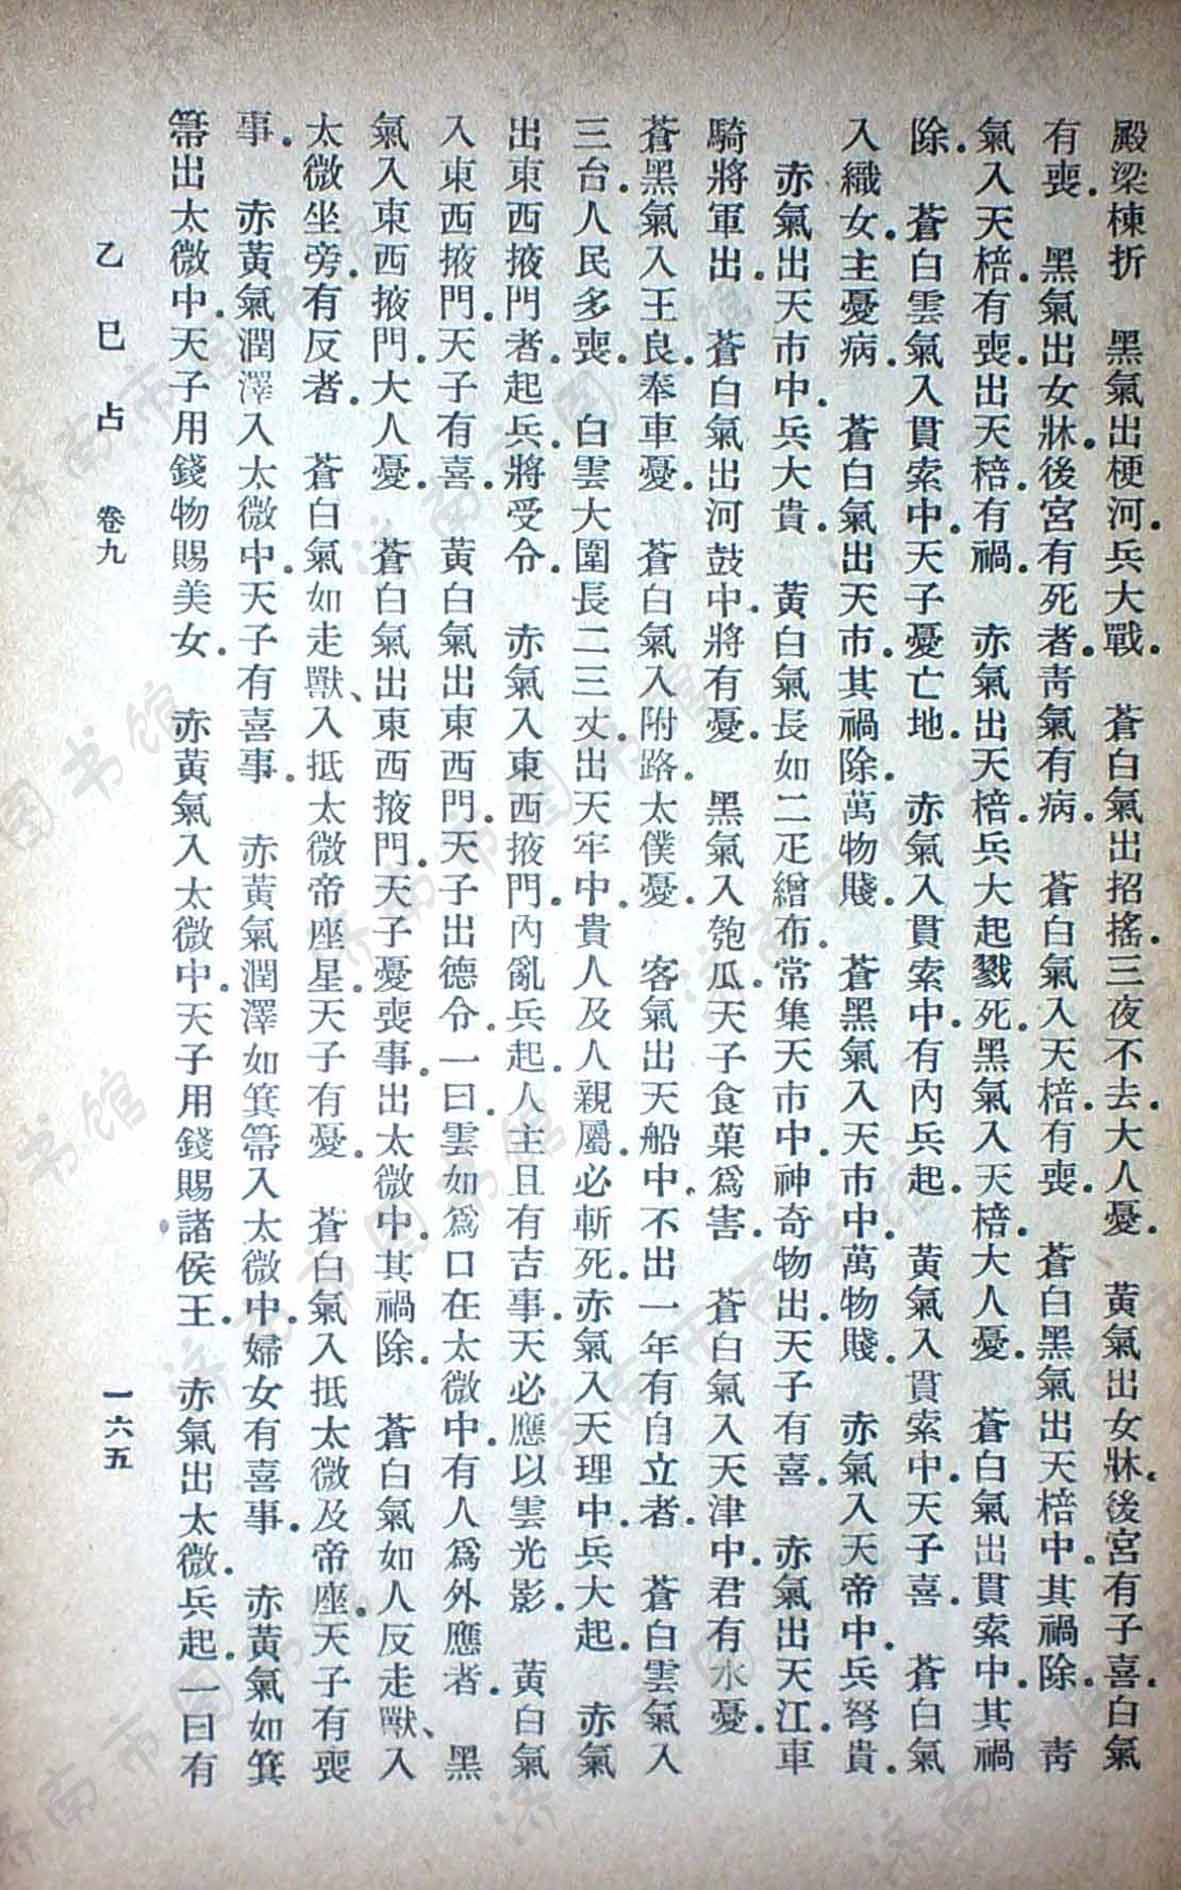 殿梁棟折　黑氣出梗河.兵大戰.　蒼白氣出招搖.三夜不去.大人憂.　黃氣出女牀.後宮有子喜.白氣
有喪.　黑氣出女牀.後宮有死者.靑氣有病.　蒼白氣入天棓.有喪.　蒼白黑氣出天棓中.其禍除.　靑
氣入天棓.有喪.出天棓.有禍.　赤氣出天棓.兵大起戮死.黑氣入天棓.大人憂.　蒼白氣出貫索中.其禍
除.　蒼白雲氣入貫索中.天子憂亡地.　赤氣入貫索中.有內兵起.　黃氣入貫索中.天子喜.　蒼白氣
入織女.主憂病.　蒼白氣出天市.其禍除.萬物賤.　蒼黑氣入天市中.萬物賤.　赤氣入天帝中.兵弩貴.
　赤氣出天市中.兵大貴.　黃白氣長如二疋繒布.常集天市中.神奇物出.天子有喜.　赤氣出天江.車
騎將軍出.　蒼白氣出河鼓中.將有憂.　黑氣入匏瓜.天子食菓爲害.　蒼白氣入天津中.君有水憂.
蒼黑氣入王良.奉車憂.　蒼白氣入附路.太僕憂.　客氣出天船中.不出一年有自立者.　蒼白雲氣入
三台.人民多喪.　白雲大圍長二三丈.出天牢中.貴人及人親屬.必斬死.赤氣入天理中.兵大起.　赤氣
出東西掖門者.起兵.將受令.　赤氣入東西掖門.內亂兵起.人主且有吉事.天必應以雲光影.　黃白氣
入東西掖門.天子有喜.　黃白氣出東西門.天子出德令.一曰.雲如爲口在太微中.有人爲外應者.　黑
氣入東西掖門.大人憂.　蒼白氣出東西掖門.天子憂喪事.出太微中.其禍除.　蒼白氣如人反走獸、入
太微坐旁.有反者.　蒼白氣如走獸、入抵太微帝座星.天子有憂.　蒼白氣入抵太微及帝座.天子有喪
事.　赤黃氣潤澤入太微中.天子有喜事.　赤黃氣潤澤如箕箒入太微中.婦女有喜事.　赤黃氣如箕
箒出太微中.天子用錢物賜美女.　赤黃氣入太微中.天子用錢賜諸侯王.　赤氣出太微.兵起.一曰有
乙巳占　卷九　一六五